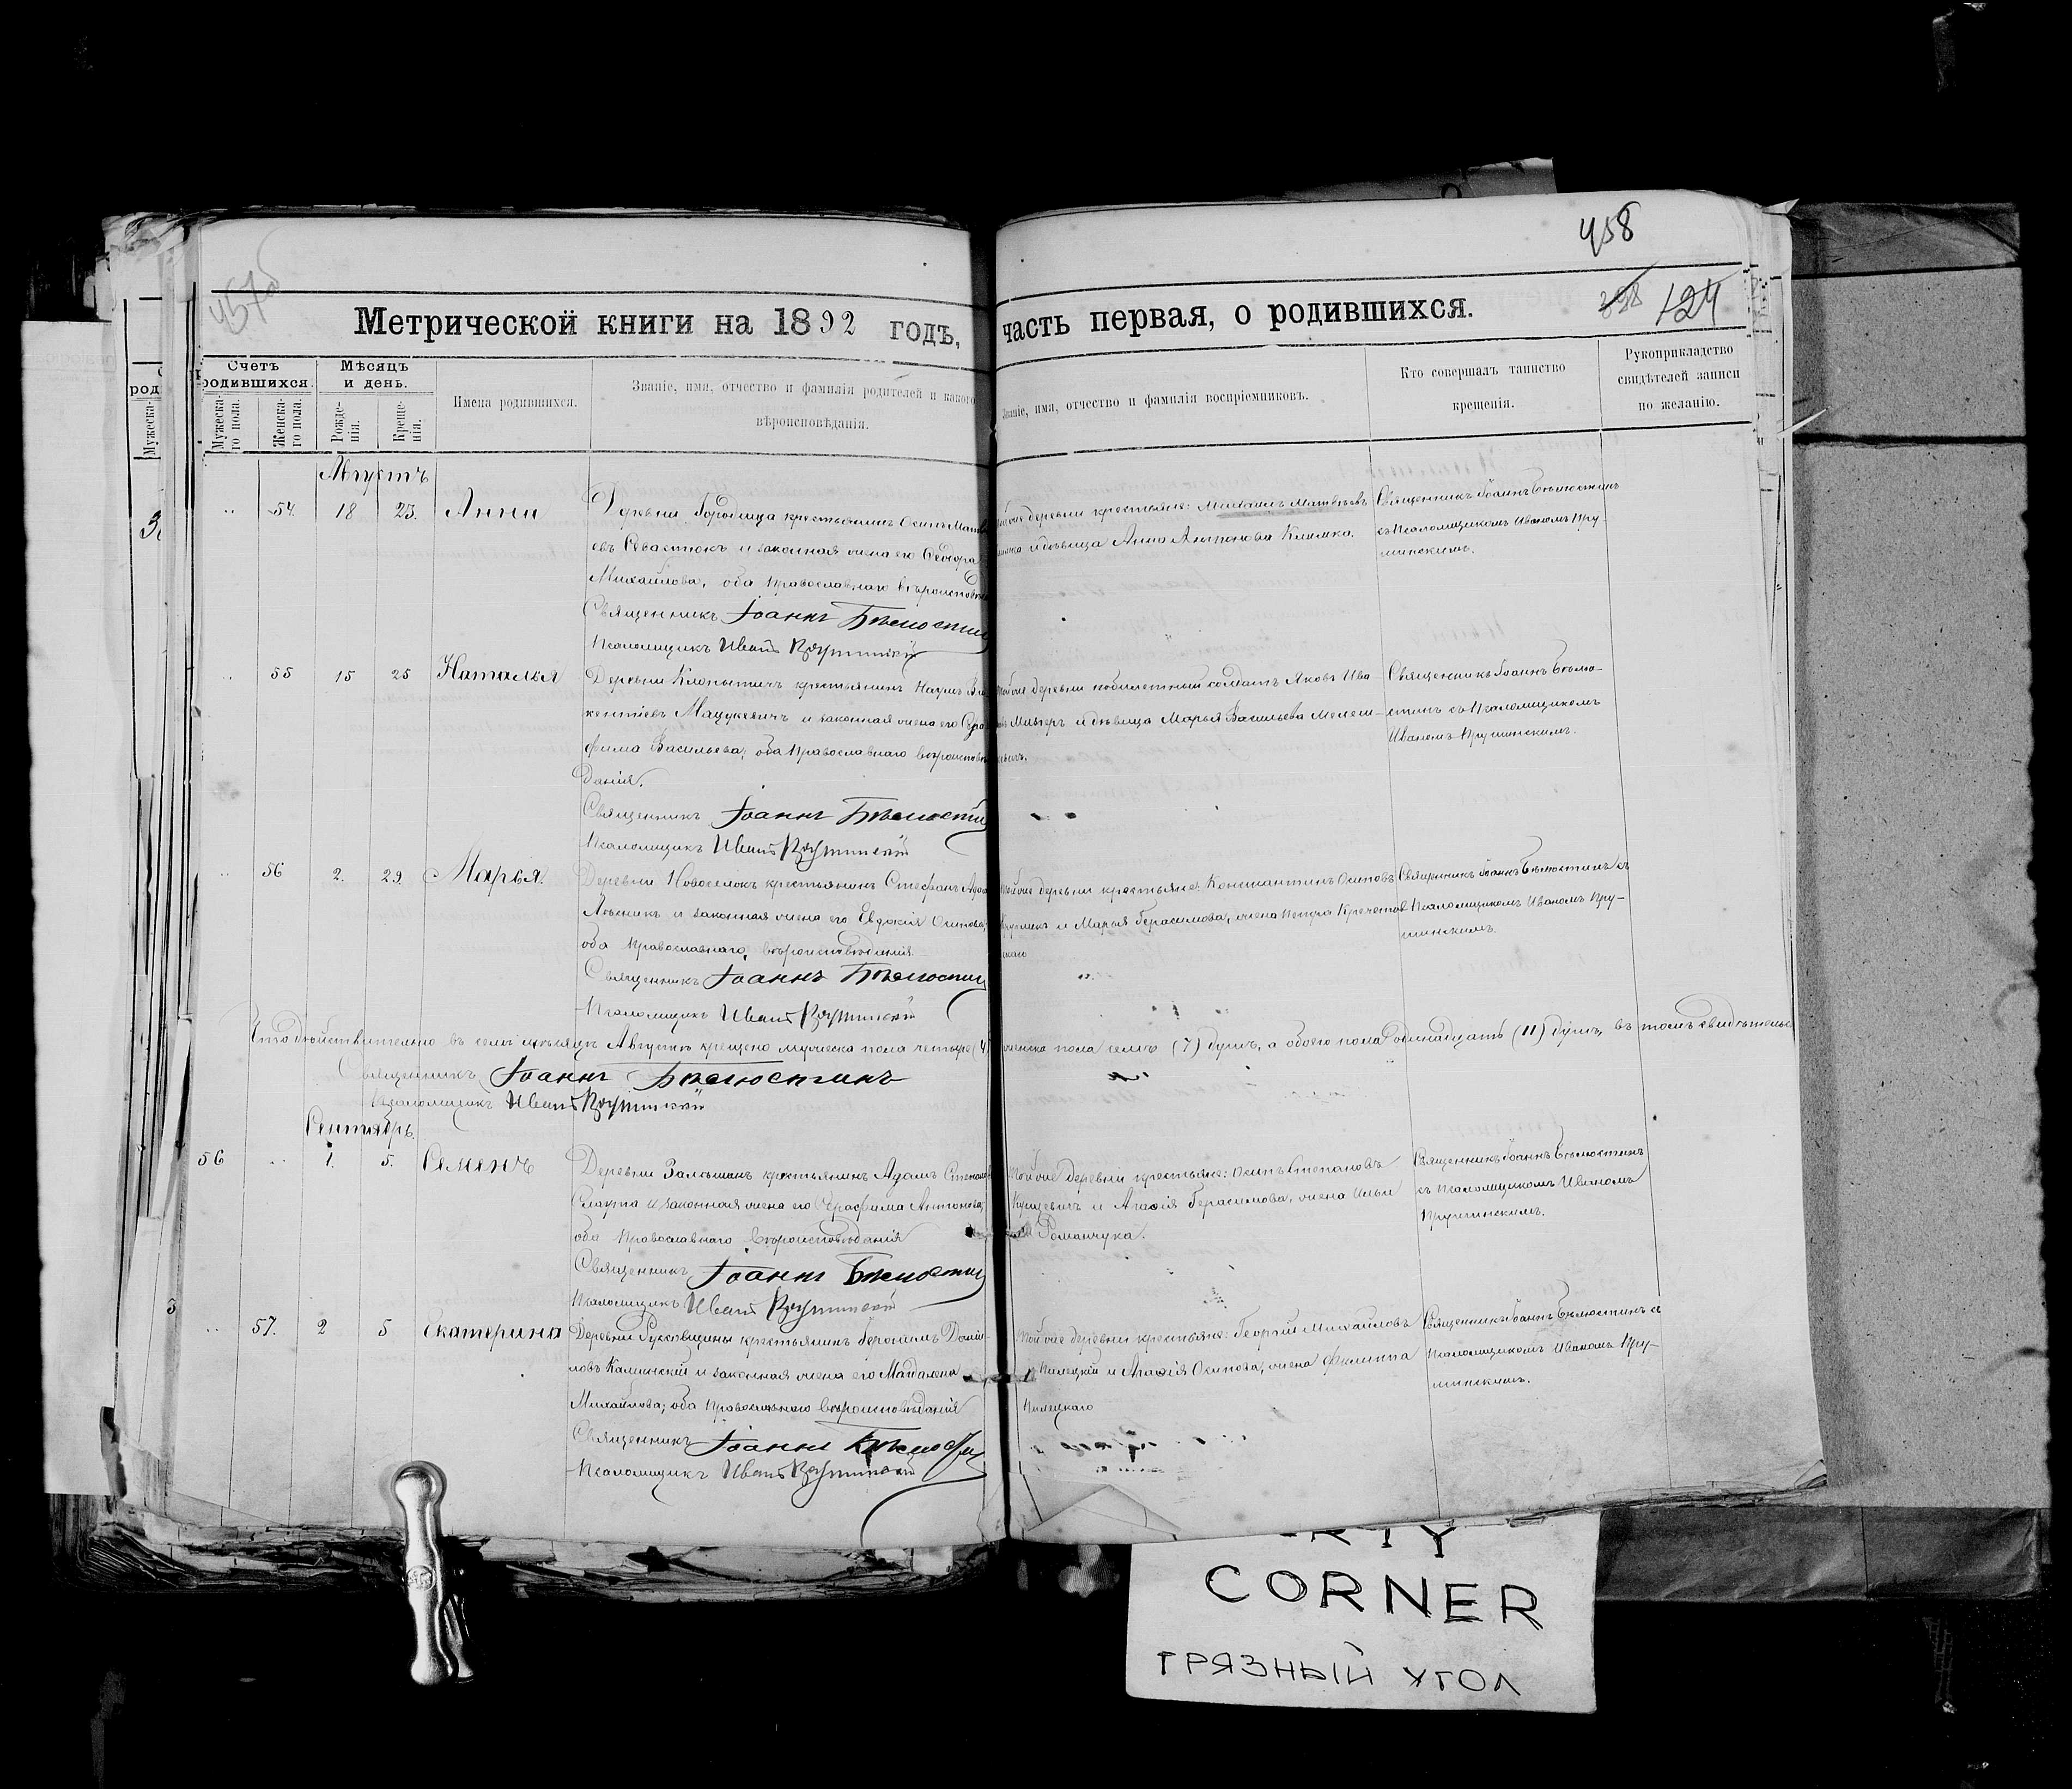 458
457об
398 124
Метрической книги на 1892 годъ, часть первая, о родившихся.
Счетъ родившихся.
Мѣсяцъ и день.
Мужеска-го пола.
Женска-го пола.
Рожде-нія.
Креще-нія.
Имена родившихся.
Званіе, имя, отчество и фамилія родителей и какого
вѣроисповѣданія.
Званіе, имя, отчество и фамилія воспріемниковъ.
Кто совершалъ таинство
крещенія.
Рукоприкладство
свидѣтелей записи
по желанію.
Августъ
54. 18 23. Анна
Деревни Городища крестьянинъ Осипъ Матв
евъ Севастюкъ и законная жена его Ѳеодора
Михайлова, оба православнаго вѣроисповѣд
Священникъ Іоаннъ Бѣлюстин
Псаломщикъ Иванъ
деревни крестьяне: Матвѣевъ
и дѣвица Анна Антонова Климка.
Священникъ Іоаннъ Бѣлюстинъ
съ Псаломщикомъ Иваномъ Пру-
шинскимъ.
55 15 25 Наталья
Деревни крестьянинъ Наумъ
кентіевъ Мацукевичъ и законная жена его Сера
фима Васильева; оба православнаго вѣроисповѣ
данія.
Священникъ Іоаннъ Бѣлюстин
Псаломщикъ Иванъ
деревни солдатъ Яковъ Ива
и дѣвица Марья Васильева Мелеш-
кевичъ.
Священникъ Іоаннъ Бѣлю-
стинъ съ Псаломщикомъ
Иваномъ Прушинскимъ.
56 2. 29. Марья.
Деревни Новоселокъ крестьянинъ Стефанъ
и законная жена его Евдокія Осипова;
оба православнаго вѣроисповѣданія.
Священникъ Іоаннъ Бѣлюстин
Псаломщикъ Иванъ
деревни крестьяне: Константинъ Осиповъ
и Марья Герасимова, жена Петра
Священникъ Іоаннъ Бѣлюстинъ съ
Псаломщикомъ Иваномъ Пру-
шинскимъ.
Что дѣйствительно въ семъ мѣсяцѣ Августѣ крещено мужеска пола четыре (4) женска пола семь (7) душъ, а обоего пола одинадцать (11) душъ, въ томъ свидѣтельс
Священникъ Іоаннъ Бѣлюстинъ
Псаломщикъ Иванъ
Сентябрь.
56 1. 5. Семенъ
Деревни крестьянинъ Адамъ Степано
и законная жена его Серафима Антонова;
оба православнаго вѣроисповѣданія
Священникъ Іоаннъ Бѣлюстин
Псаломщикъ Иванъ
Той же деревни крестьяне: Осипъ Степановъ
и Агаѳія Герасимова, жена Ильи
Романчука.
Священникъ Іоаннъ Бѣлюстинъ
съ Псаломщикомъ Иваномъ
Прушинскимъ.
57. 2 5 Екатерина
Деревни крестьянинъ Данiи-
ловъ Каминскій и законная жена его Магдалена
Михайлова; оба православнаго вѣроисповѣданія
Священникъ Іоаннъ
Псаломщикъ Иванъ
Той же деревни крестьяне: Георгій Михайловъ
Пилецкій и Агаѳія Осипова, жена Филиппа
Пилецкаго
Священникъ Іоаннъ Бѣлюстинъ съ
Псаломщикомъ Иваномъ Пру-
шинскимъ.
CORNER
ГРЯЗНЫЙ УГОЛ